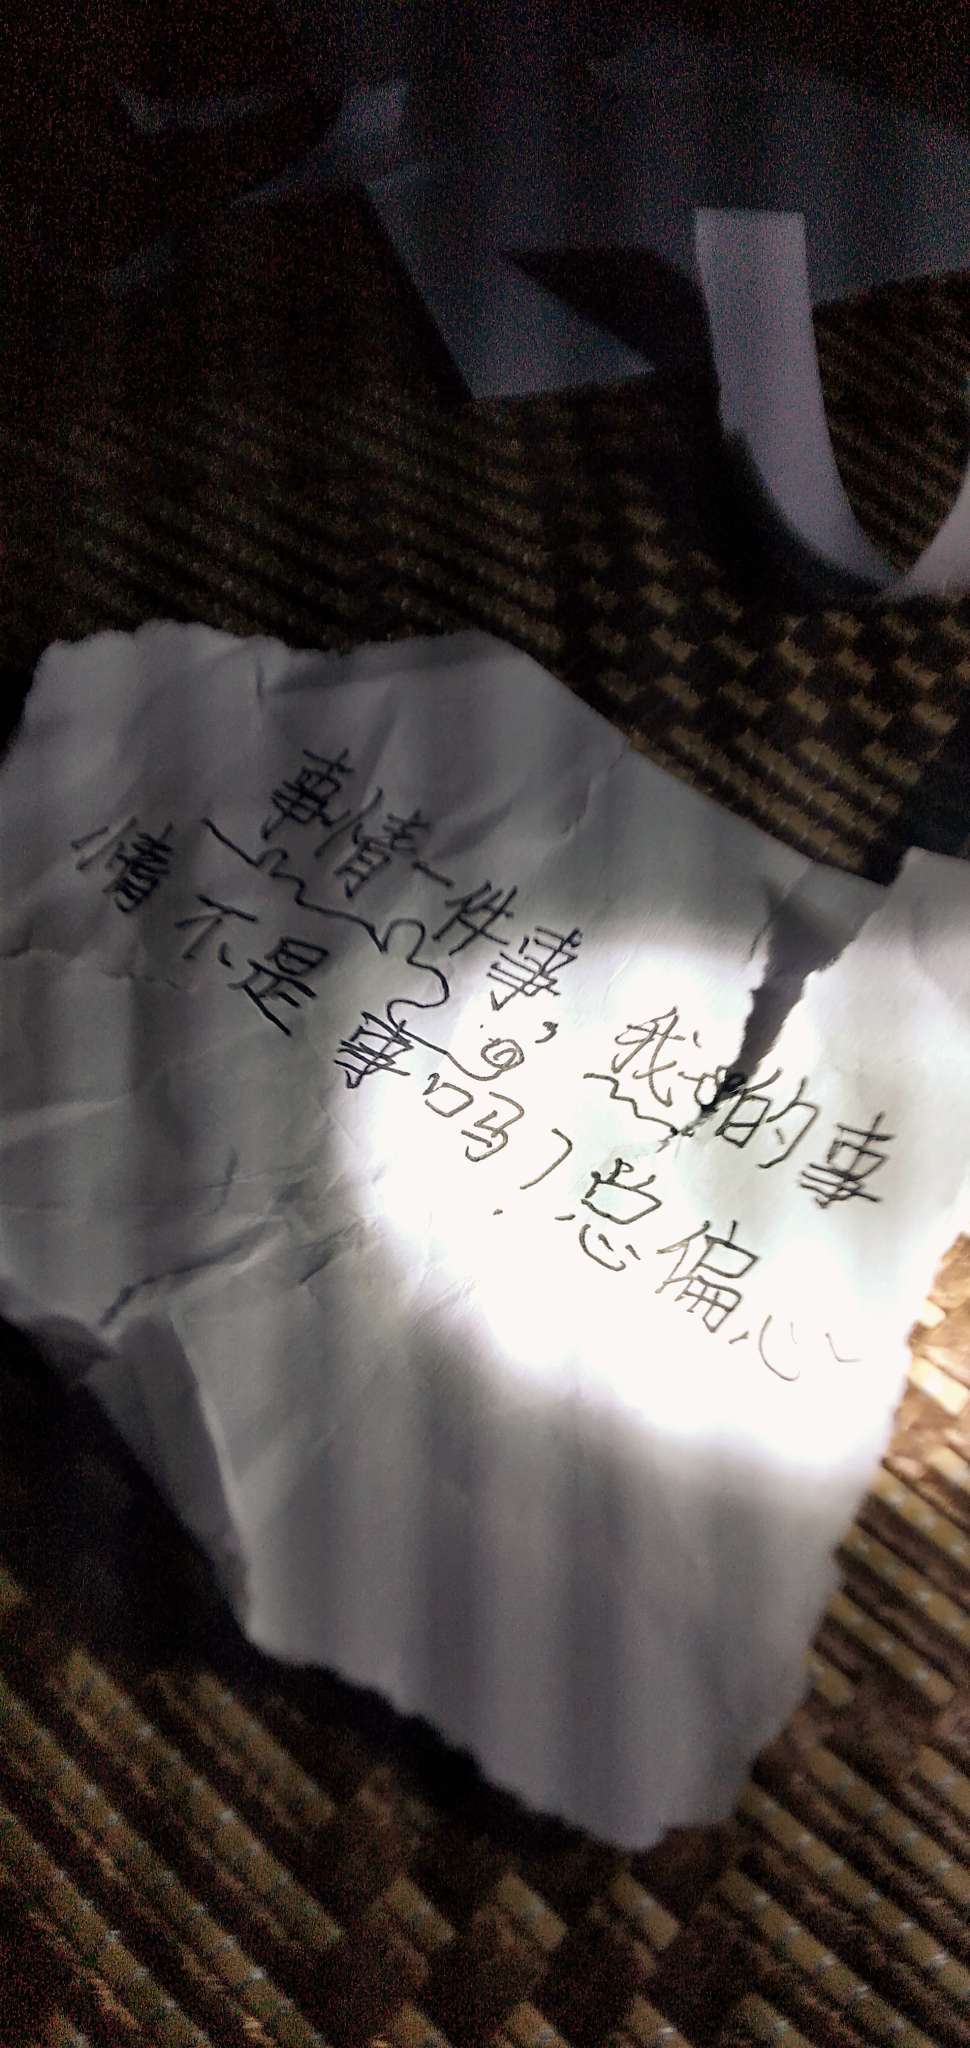 事情一件事，我的事
情不是事吗？总偏心